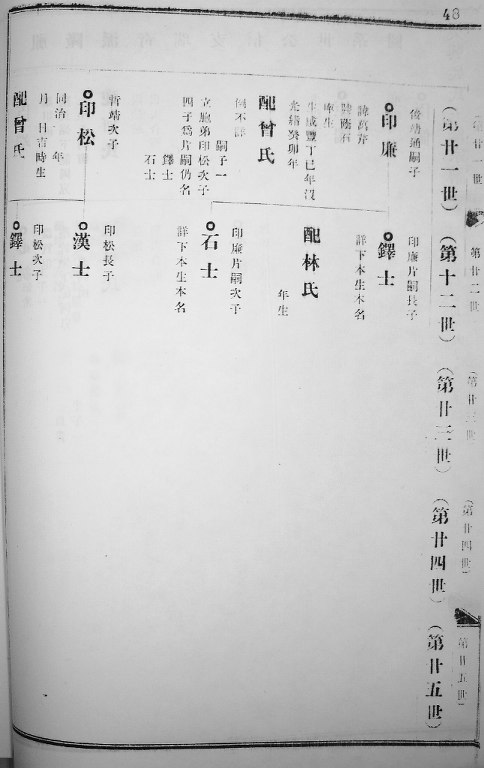 48
(第廿一世)
(第十二世)
(第廿三世)
(第廿四世)
(第廿五世)
第廿二世
(第廿三世
(第廿四世)
第廿五世)
印廉
諱萬芹
生咸豐丁巳年沒
光緒癸卯年
配曾氏
嗣子一
立胞弟印松次子
四子爲片嗣仍名
鐸士
石士
印松
哲靖次子
同治 年
月 日吉時生
配曾氏
鐸士
印廉片嗣長子
詳下本生本名
配林氏
年生
石士
印廉片嗣次子
詳下本生本名
漢士
印松長子
鐸士
印松次子